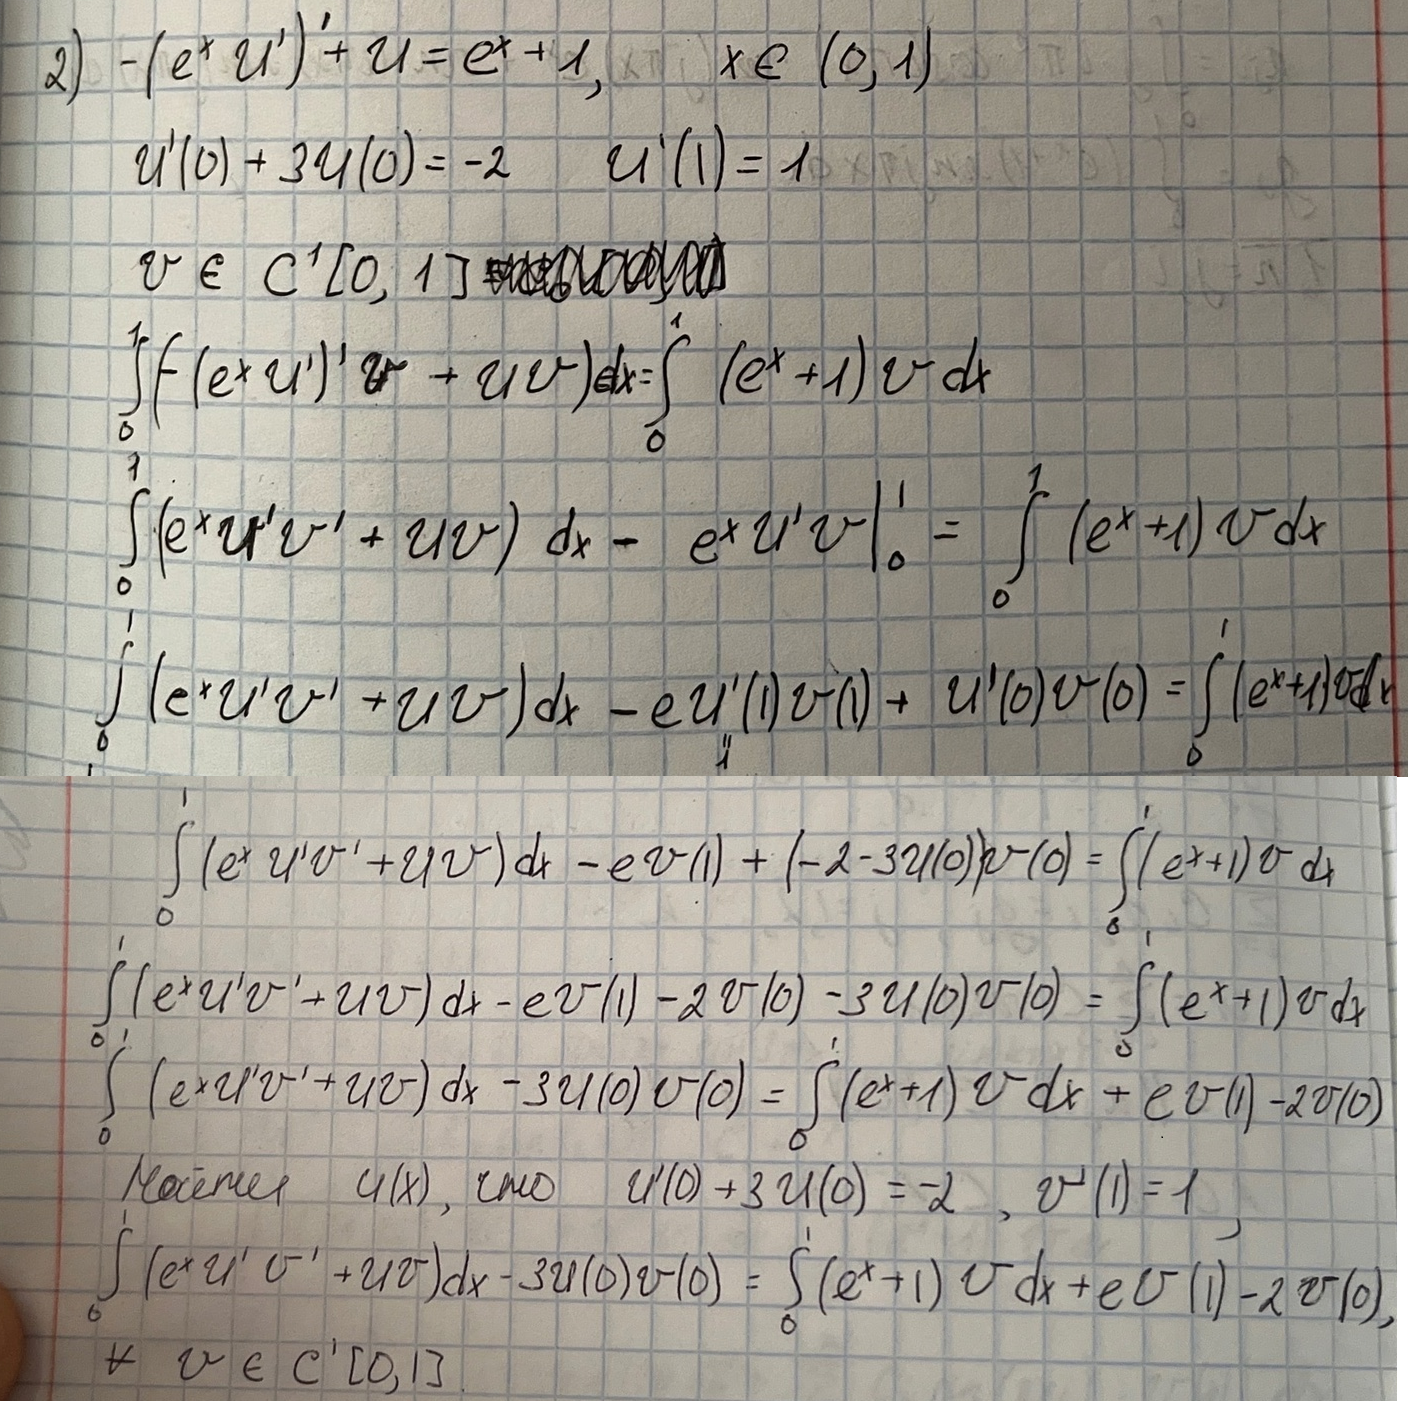 2) -(eˣ u')' + u = eˣ + 1, x ∈ (0, 1)
u'(0) + 3u(0) = -2 u'(1) = 1
v ∈ C¹[0, 1]
∫₀¹ (-(eˣ u')' v + uv) dx = ∫₀¹ (eˣ + 1) v dx
∫₀¹ (eˣ u'v' + uv) dx - eˣ u'v |₀¹ = ∫₀¹ (eˣ + 1) v dx
∫₀¹ (eˣ u'v' + uv) dx - e u'(1) v(1) + u'(0) v(0) = ∫₀¹ (eˣ + 1) v dx
"
1
∫₀¹ (eˣ u'v' + uv) dx - e v(1) + (-2 - 3u(0)) v(0) = ∫₀¹ (eˣ + 1) v dx
∫₀¹ (eˣ u'v' + uv) dx - e v(1) - 2 v(0) - 3u(0) v(0) = ∫₀¹ (eˣ + 1) v dx
∫₀¹ (eˣ u'v' + uv) dx - 3u(0) v(0) = ∫₀¹ (eˣ + 1) v dx + e v(1) - 2v(0)
u(x), что u'(0) + 3u(0) = -2, v'(1) = 1,
∫₀¹ (eˣ u' v' + uv) dx - 3u(0) v(0) = ∫₀¹ (eˣ + 1) v dx + e v(1) - 2 v(0),
∀ v ∈ C'[0, 1]